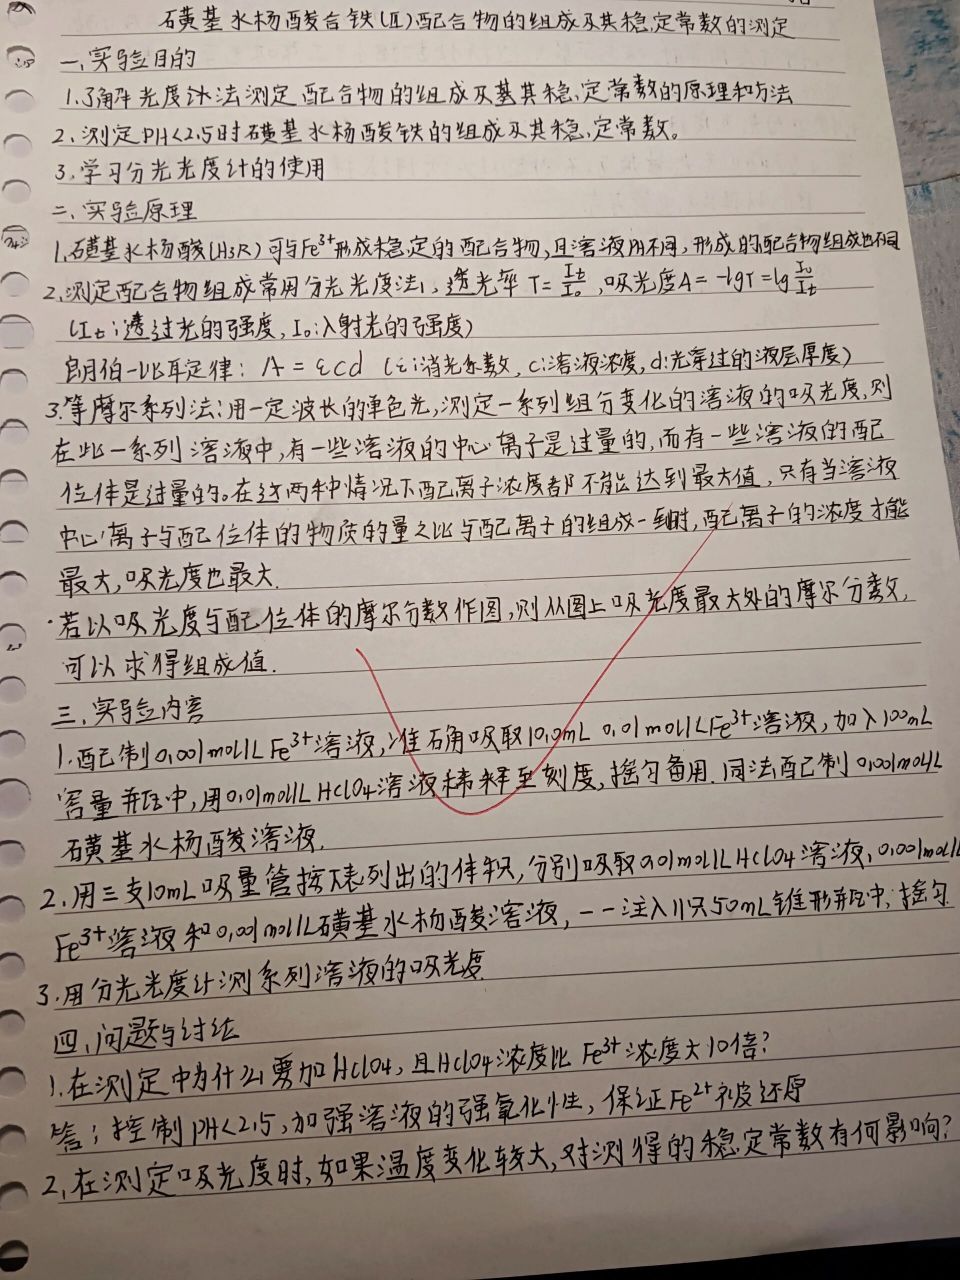 磺基水杨酸合铁(Ⅲ)配合物的组成及其稳定常数的测定
一、实验目的
1.了解光度法测定配合物的组成及其稳定常数的原理和方法
2.测定PH<2.5时磺基水杨酸铁的组成及其稳定常数。
3.学习分光光度计的使用
二、实验原理
1.磺基水杨酸(H3R)可与Fe³⁺形成稳定的配合物,且溶液PH不同,形成的配合物组成也不同
2.测定配合物组成常用分光光度法,透光率T=It/I₀,吸光度A=-lgT=lg I₀/It
(It:透过光的强度,I₀:入射光的强度)
朗伯-比耳定律:A=εcd (ε:消光系数,c:溶液浓度,d:光穿过的液层厚度)
3.等摩尔系列法:用一定波长的单色光,测定一系列组分变化的溶液的吸光度,则
在此一系列溶液中,有一些溶液的中心离子是过量的,而有一些溶液的配
位体是过量的。在这两种情况下配离子浓度都不能达到最大值,只有当溶液
中心离子与配位体的物质的量之比与配离子的组成一致时,配离子的浓度才能
最大,吸光度也最大.
·若以吸光度与配位体的摩尔分数作图,则从图上吸光度最大处的摩尔分数,
可以求得组成值.
三、实验内容
1.配制0.001mol/L Fe³⁺溶液,准确吸取10.0mL 0.01mol/LFe³⁺溶液,加入100mL
容量瓶中,用0.01mol/L HClO4溶液稀释至刻度,摇匀备用.同法配制0.001mol/L
磺基水杨酸溶液.
2.用三支10mL吸量管按下表列出的体积,分别吸取0.01mol/LHClO4溶液,0.001mol/L
Fe³⁺溶液和0.001mol/L磺基水杨酸溶液,一一注入11只50mL锥形瓶中,摇匀
3.用分光光度计测系列溶液的吸光度
四、问题与讨论
1.在测定中为什么要加HClO4,且HClO4浓度比Fe³⁺浓度大10倍?
答:控制PH<2.5,加强溶液的强氧化性,保证Fe²⁺被还原
2.在测定吸光度时,如果温度变化较大,对测得的稳定常数有何影响?